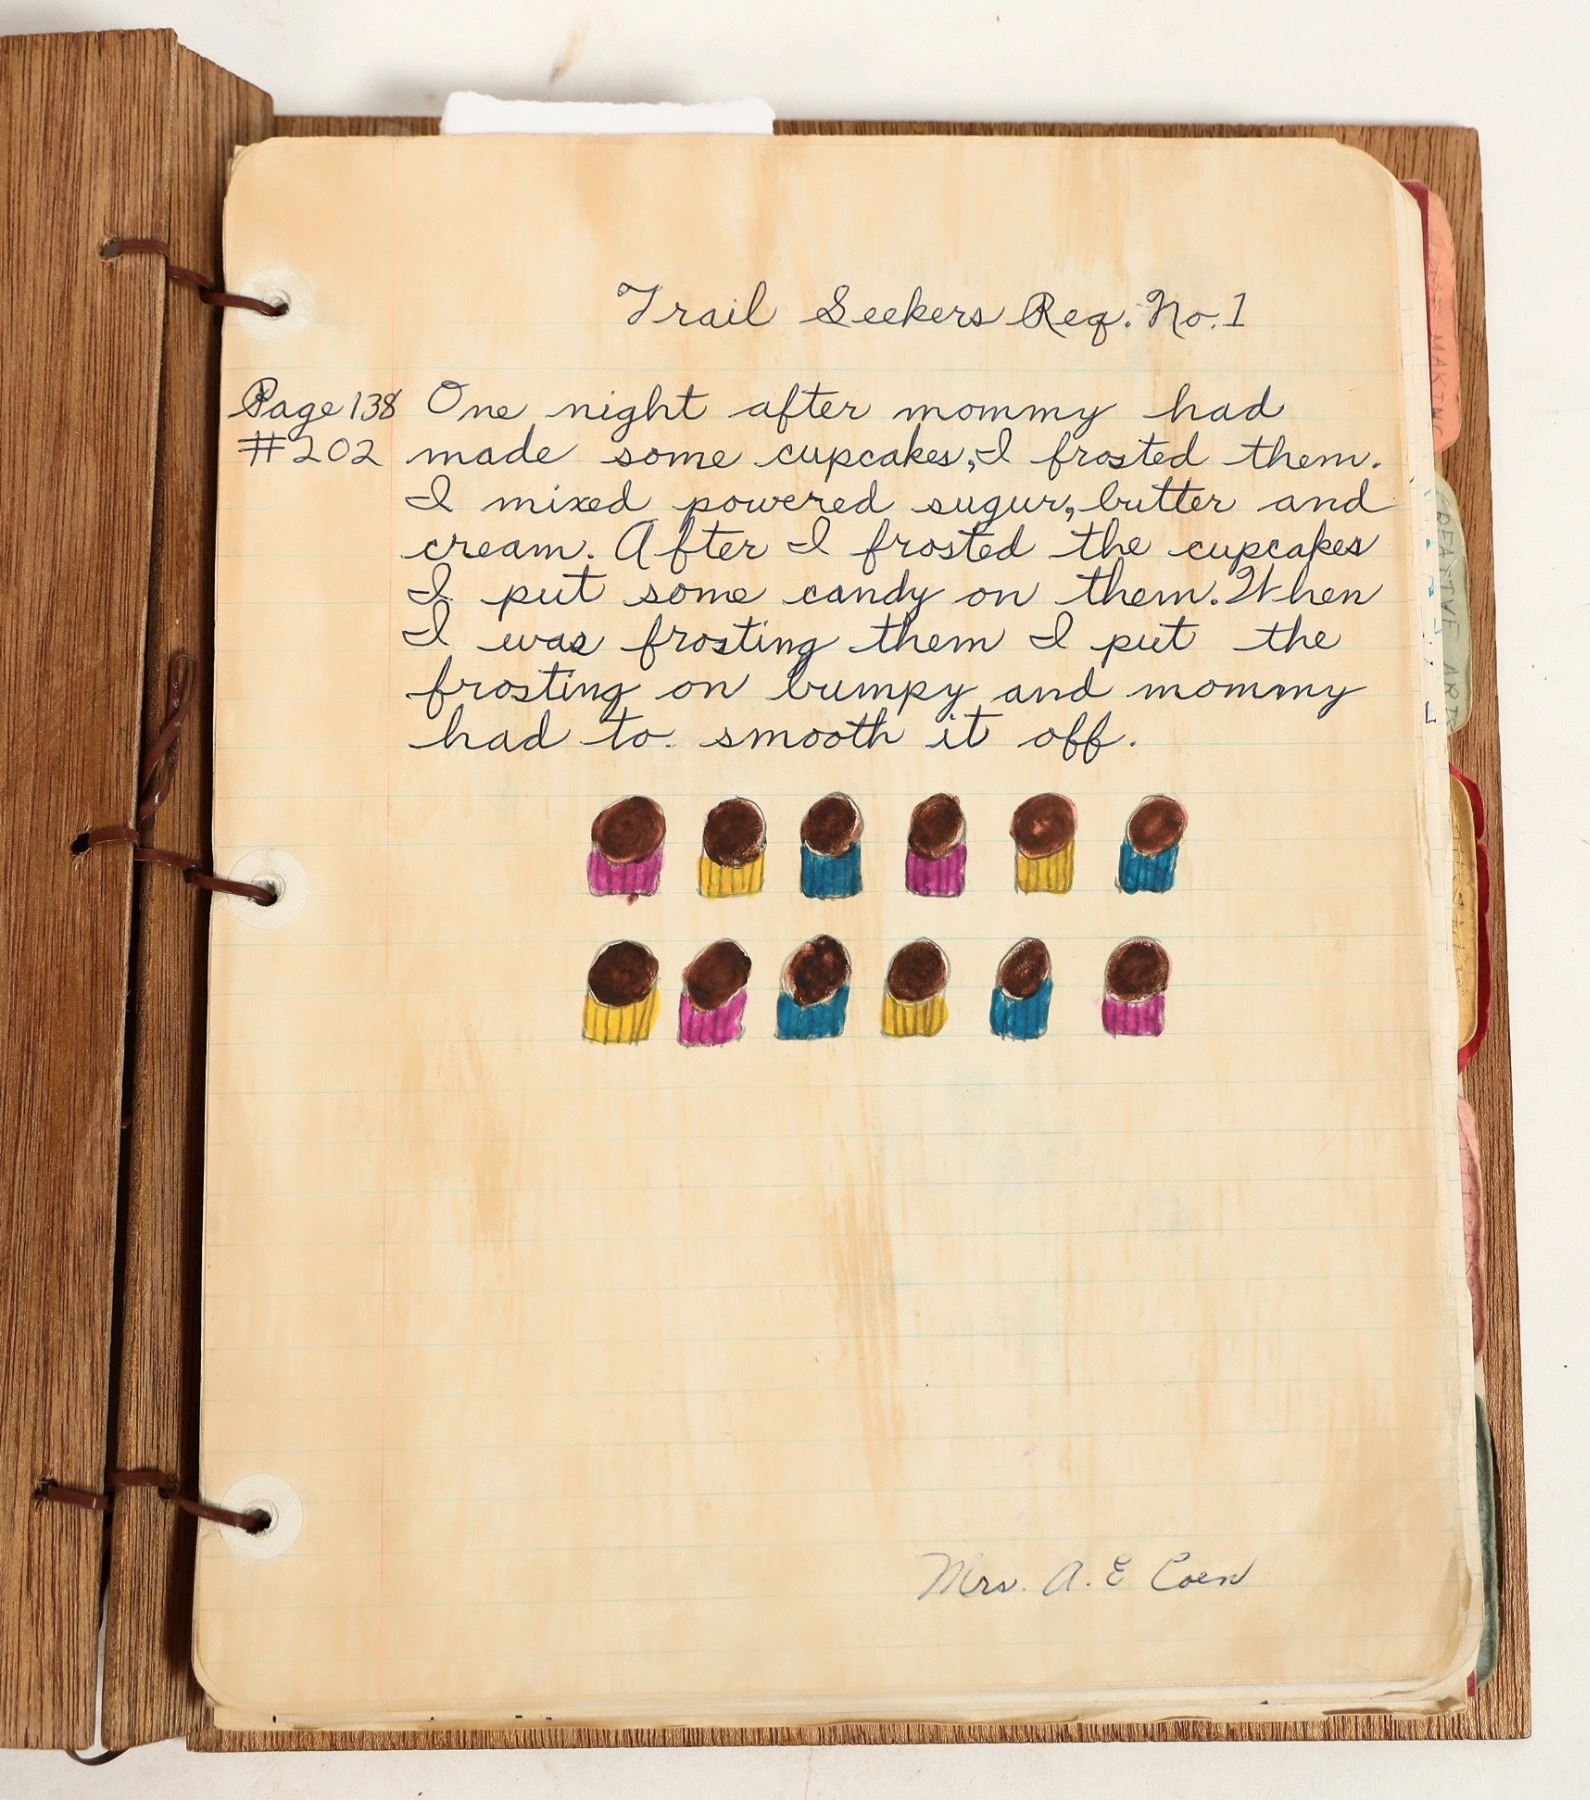 Trail Seekers Req. No. 1
Page 138 One night after mommy had
#202 made some cupcakes, I frosted them.
I mixed powered sugur, butter and
cream. After I frosted the cupcakes
I put some candy on them. When
I was frosting them I put the
frosting on bumpy and mommy
had to smooth it off.
Mrs. A. E Coen
MAKING
CREATIVE ART